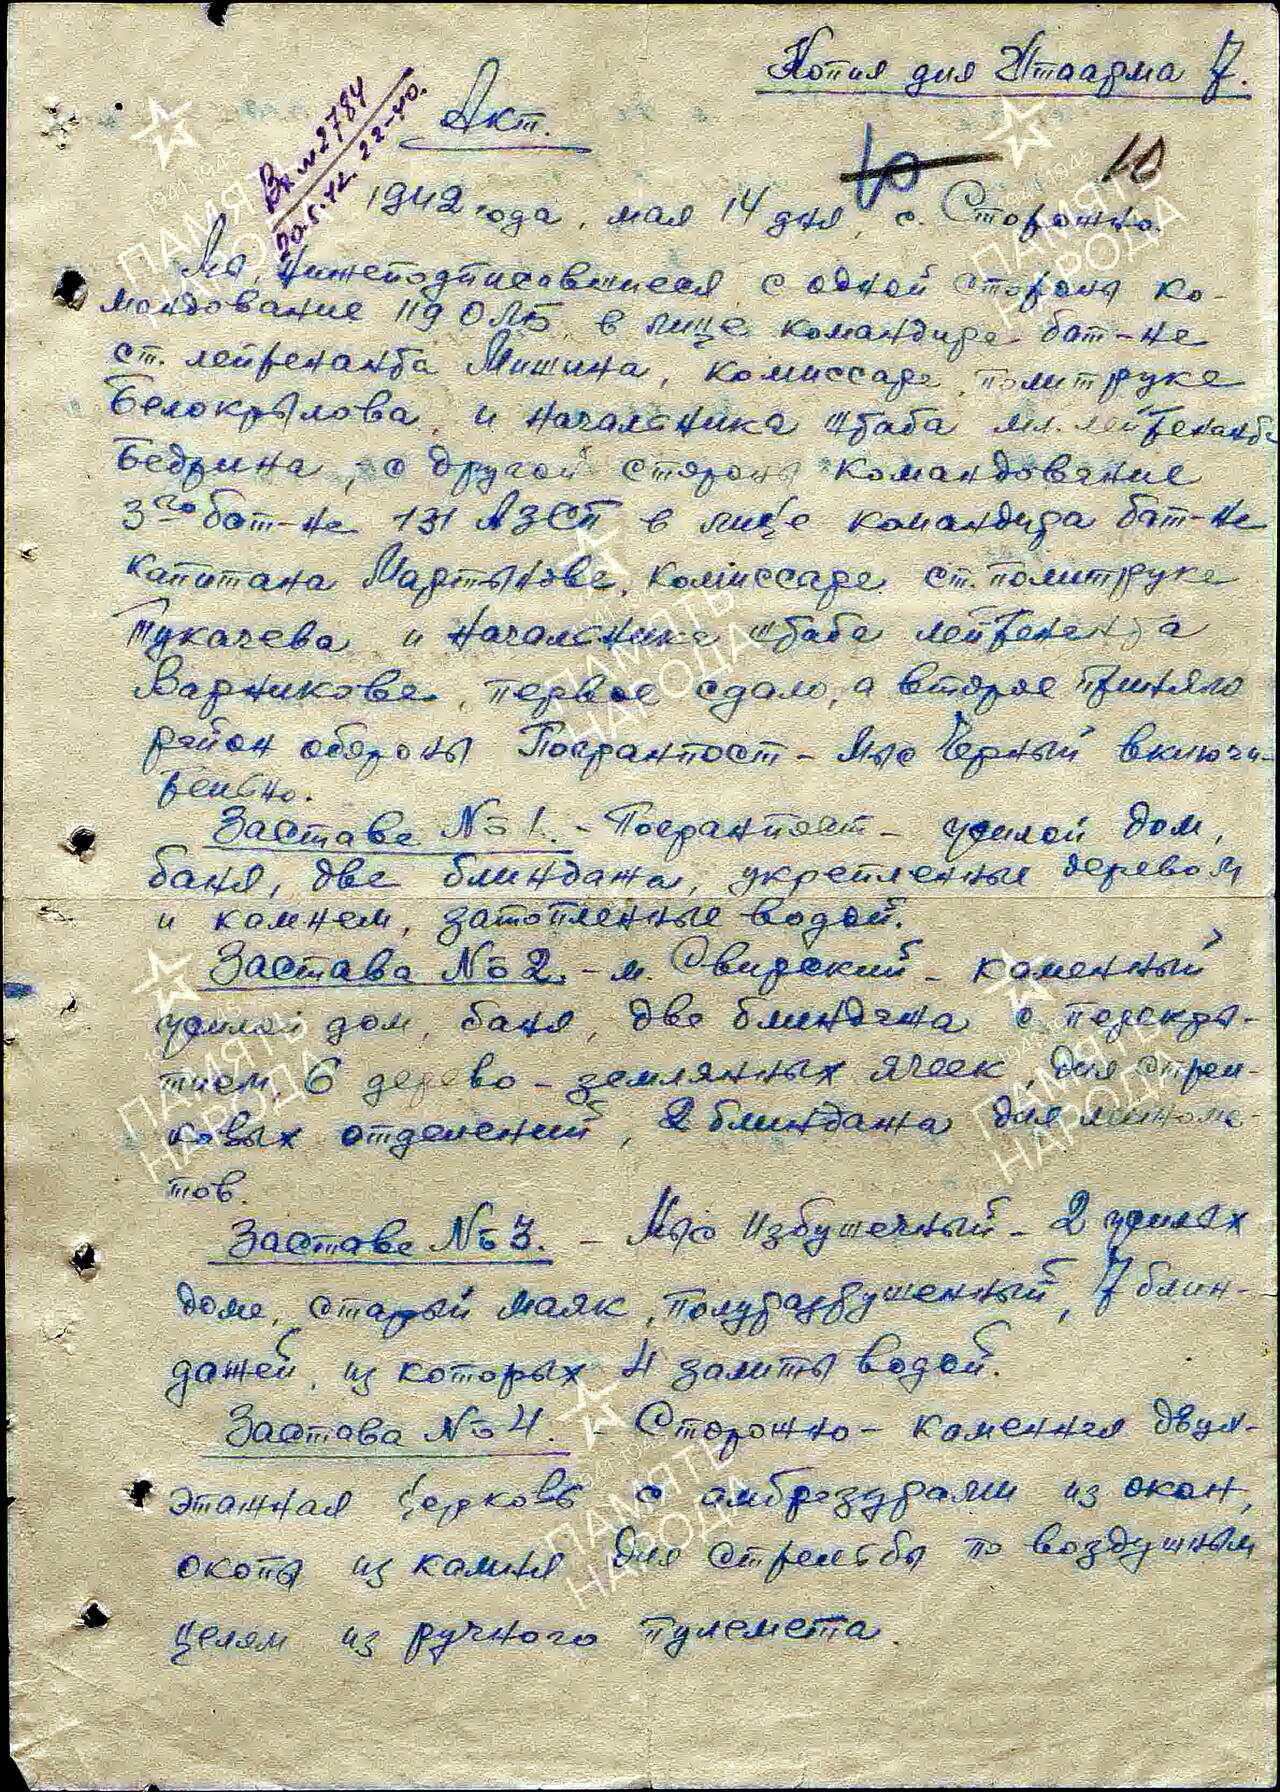 Копия для Штаарма 7.
Вх. № 2784
20.5.42. 22-40.
Акт.
10 10
1942 года, мая 14 дня, с. Сторожно.
Мы, нижеподписавшиеся, с одной стороны ко-
мандование 119 ОЛБ в лице командира бат-на
ст. лейтенанта Мишина, комиссара политрука
Белокрылова и начальника штаба мл. лейтенанта
Бедрина, с другой стороны командование
3го бат-на 131 АЗСП в лице командира бат-на
капитана Мартынова, комиссара ст. политрука
Тукачева и начальника штаба лейтенанта
Варникова, первое сдало, а второе приняло
район обороны Погранпост - Мыс Черный включи-
тельно.
Застава № 1. - Погранпост - жилой дом,
баня, два блиндажа, укрепленные деревом
и камнем, затопленные водой.
Застава № 2. - м. Свирский - каменный
жилой дом, баня, два блиндажа с перекры-
тием, 6 дерево-землянных ячеек для стрел-
ковых отделений, 2 блиндажа для миноме-
тов.
Застава № 3. - Мыс Избушечный - 2 жилых
дома, старый маяк, полуразрушенный, 7 блин-
дажей, из которых 4 залиты водой.
Застава № 4. - Сторожно - каменная двух-
этажная церковь с амбразурами из окон,
окопы из камня для стрельбы по воздушным
целям из ручного пулемета.
ПАМЯТЬ
НАРОДА
1941-1945
ПАМЯТЬ
НАРОДА
1941-1945
ПАМЯТЬ
НАРОДА
1941-1945
ПАМЯТЬ
НАРОДА
1941-1945
ПАМЯТЬ
НАРОДА
1941-1945
ПАМЯТЬ
НАРОДА
1941-1945